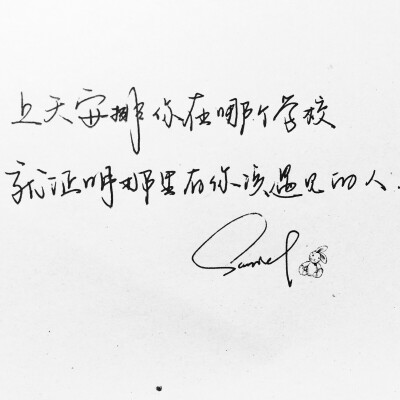 上天安排你在哪个学校
就证明那里有你该遇见的人.
Samuel